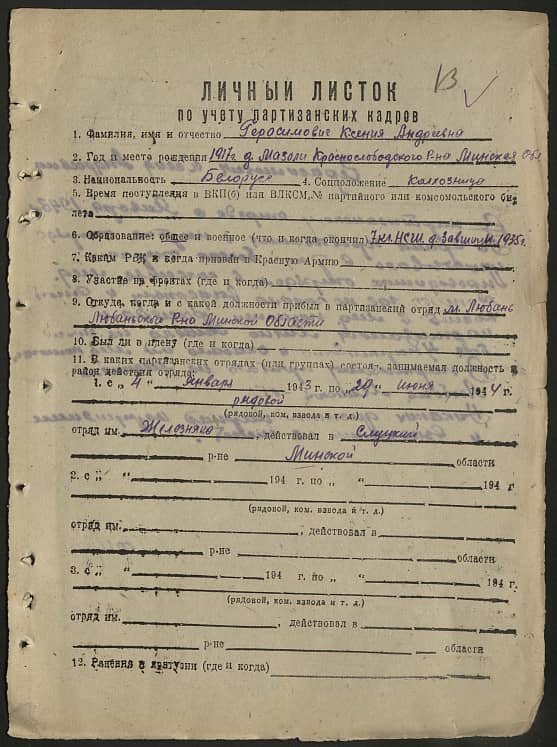 13
ЛИЧНЫЙ ЛИСТОК
по учету партизанских кадров
1. Фамилия, имя и отчество Герасимович Ксения Андреевна
2. Год и место рождения 1917г д. Мазоли Краснослободского Р-на Минская Обл
3. Национальность Белорусс 4. Соцположение Колхозница
5. Время поступления в ВКП(б) или ВЛКСМ, № партийного или комсомольского би-
лета
6. Образование: общее и военное (что и когда окончил) 7кл. НСШ д. 1935г.
7. Каким РВК и когда призван в Красную Армию
8. Участие на фронтах (где и когда)
9. Откуда, когда и с какой должности прибыл в партизанский отряд м. Любань
Любаньского Р-на Минской Области
10. Был ли в плену (где и когда)
11. В каких партизанских отрядах (или группах) состоял, занимаемая должность и
район действия отряда:
1. с „ 4 “ Января 1943 г. по „ 29 “ июня 1944 г.
рядовой
(рядовой, ком. взвода и т. д.)
отряд им. Железняка, действовал в Слуцкий
р-не Минской области
2. с „ “ 194 г. по „ “ 194 г.
(рядовой, ком. взвода и т. д.)
отряд им. , действовал в
р-не области
3. с „ “ 194 г. по „ “ 194 г.
(рядовой, ком. взвода и т. д.)
отряд им. , действовал в
р-не области
12. Ранения и контузии (где и когда)